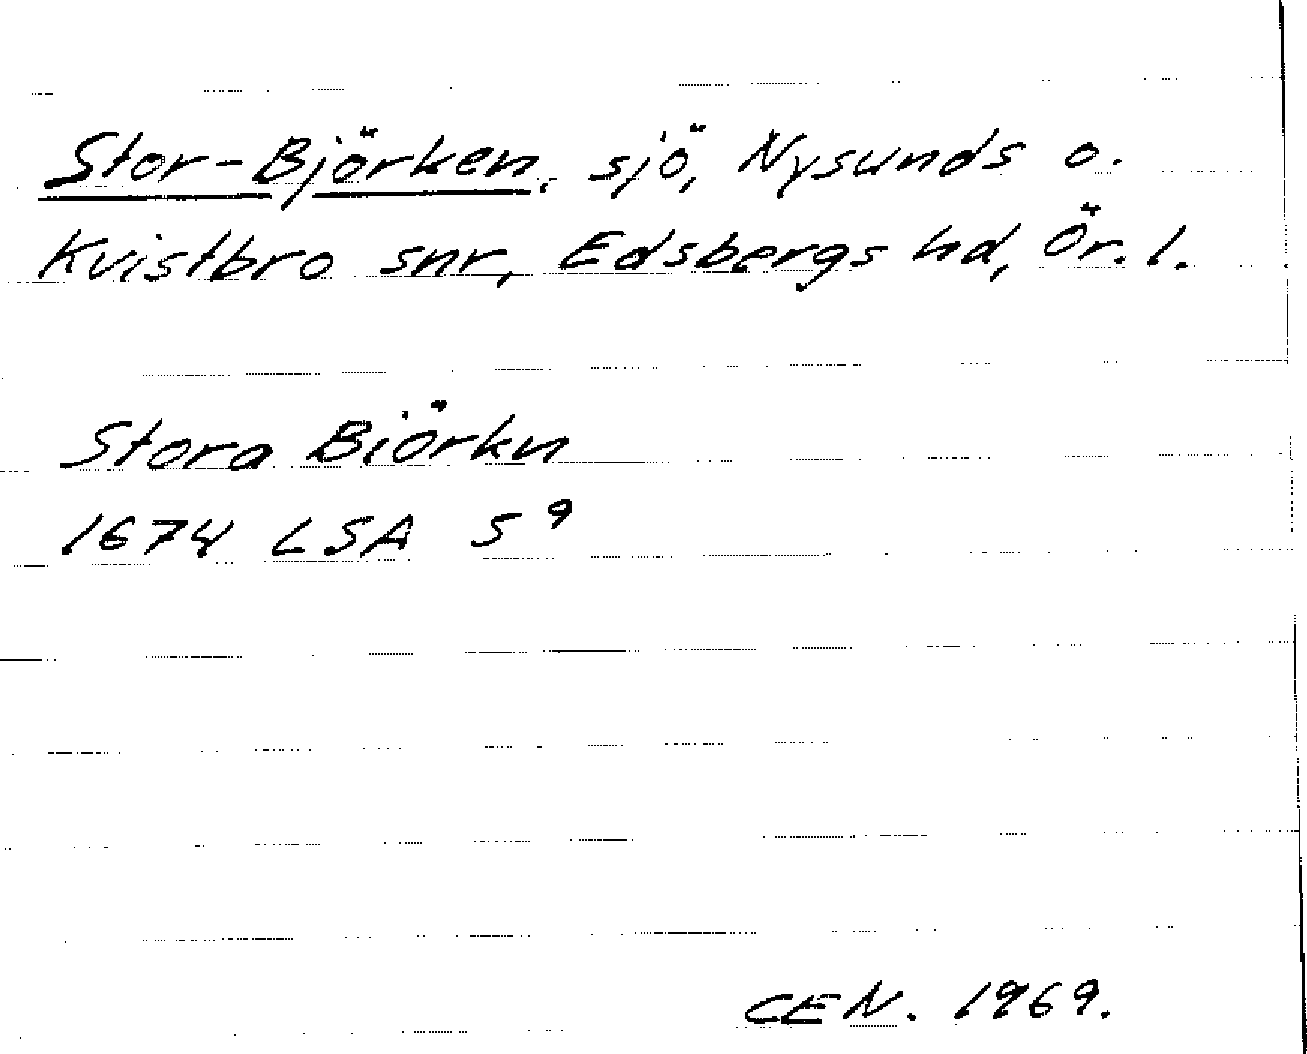 Stor-Björken, sjö, Nysunds o.
Kvistbro snr, Edsbergs hd, Ör. l.
Stora Biörkn
1674 LSA S 9
CEN. 1969.